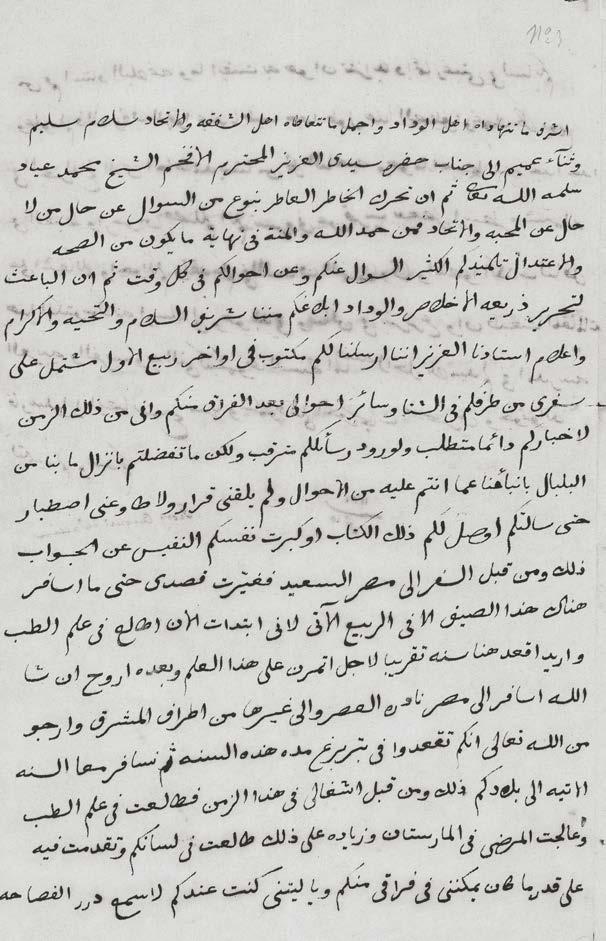 اشرف ما تتهاداه اهل الوداد واجمل ما تتعاطاه اهل الشفقه والاتحاد سلام سليم
وثنآء عميم الى جناب حضره سيدى العزيز المحترم الافخم الشيخ محمد عياد
سلمه الله تعالى ثم ان تحرك الخاطر العاطر بنوع من السوال عن حال من لا
حال عن المحبه والاتحاد فمن حمد الله والمنة فى نهاية ما يكون من الصحه
والاعتدال تلميذلم الكثير السوال عنكم وعن احوالكم فى كل وقت ثم ان الباعث
لتحرير ذريعه الاخلاص والوداد ابلاغكم مننا شريف السلام والتحيه والاكرام
واعلام استاذنا العزيز اننا ارسلنا للم مكتوب فى اواخر ربيع الاول مشتمل على
سفرى من طرفلم فى الشتا وسائر احوالى بعد الفراق منكم وانى من ذلك الزمن
لاخبارلم دائما متطلب ولورود رسائلكم مترقب ولكن ما تفضلتم بانزال ما بنا من
البلبال بانبأهنا عما انتم عليه من الاحوال ولم يلقنى قرار ولا طاوعنى اصطبار
حتى سالتكم اوصل لكم ذلك الكتاب او كبرت نفسكم النفيس عن الجواب
ذلك ومن قبل السفر الى مصر السعيد فغيّرت قصدى حتى ما اسافر
هناك هذا الصيف الا فى الربيع الآتى لانى ابتدات الان اطالع فى علم الطب
واريد اقعد هنا سنه تقريبا لاجل اتمرن على هذا العلم وبعده اروح ان شا
الله اسافر الى مصر نادرة العصر والى غيرها من اطراف المشرق وارجو
من الله تعالى انكم تقعدوا فى بتربرغ مده هذه السنه ثم نسافر معا السنه
الاتيه الى بلادكم ذلك ومن قبل اشغالى فى هذا الزمن فطالعت فى علم الطب
وعالجت المرضى فى المارستان وزياده على ذلك طالعت فى لسانكم وتقدمت فيه
على قدر ما كان يمكننى فى فراقى منكم ويا ليتنى كنت عندكم لاسمع درر الفصاحه